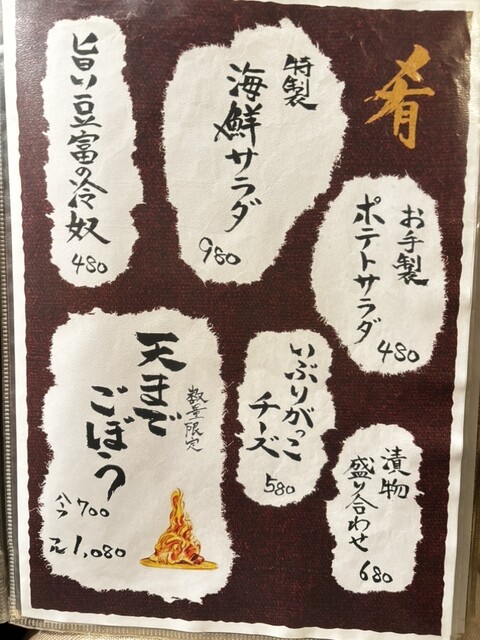 肴
お手製
ポテトサラダ
480
特製
海鮮サラダ
980
旨い豆富の冷奴
480
漬物
盛り合わせ
680
いぶりがっこ
チーズ
580
数量限定
天まで
ごぼう
ハーフ 700
1,080